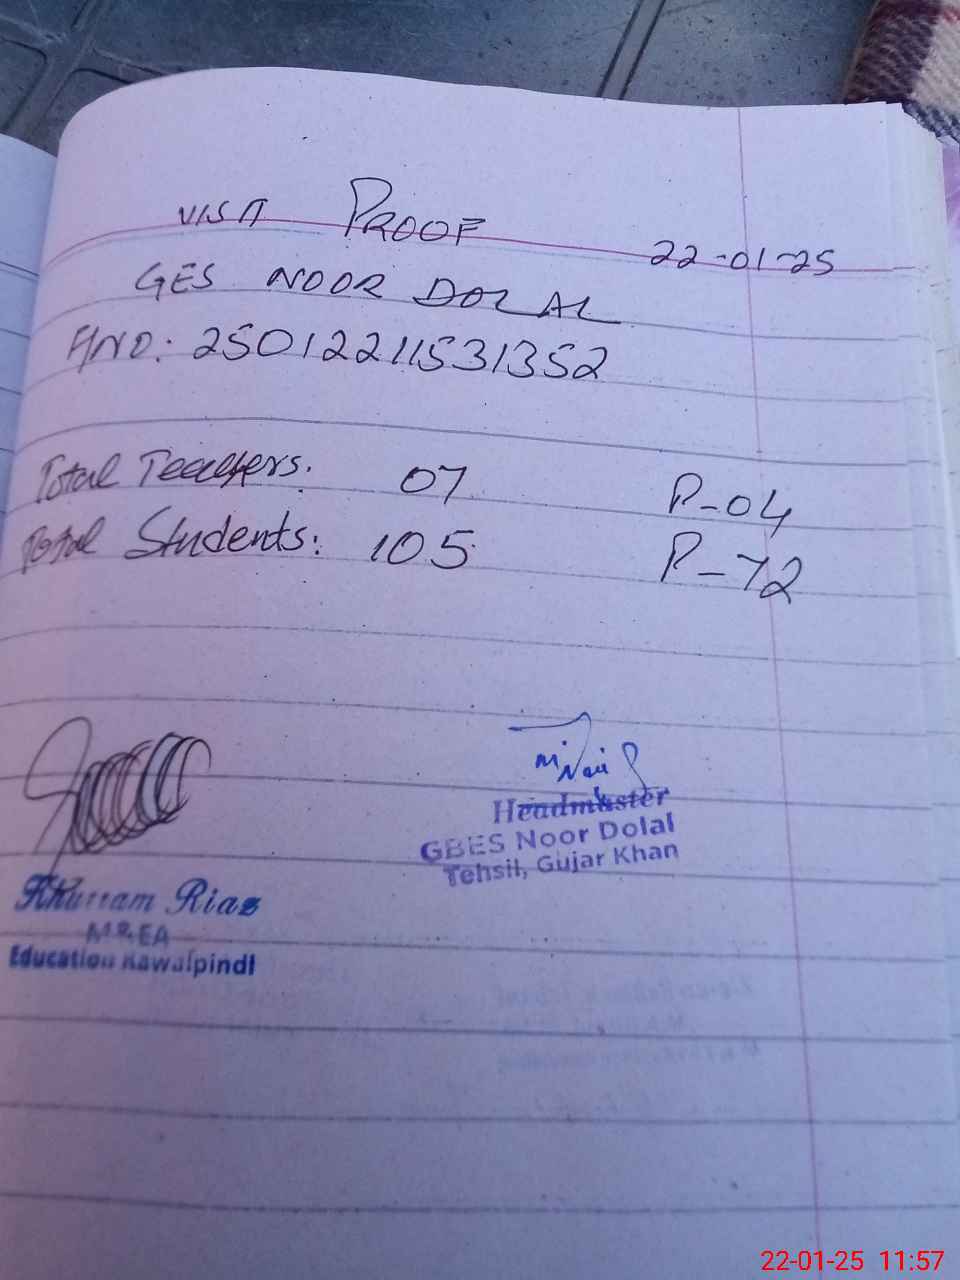 VISIT PROOF 22-01-25
GES NOOR DOLAL
A/NO: 25012211531352
Total Teachers: 07 P-04
Total Students: 105 P-72
Headmaster
GBES Noor Dolal
Tehsil, Gujar Khan
Khurram Riaz
M&EA
Education Rawalpindi
22-01-25 11:57